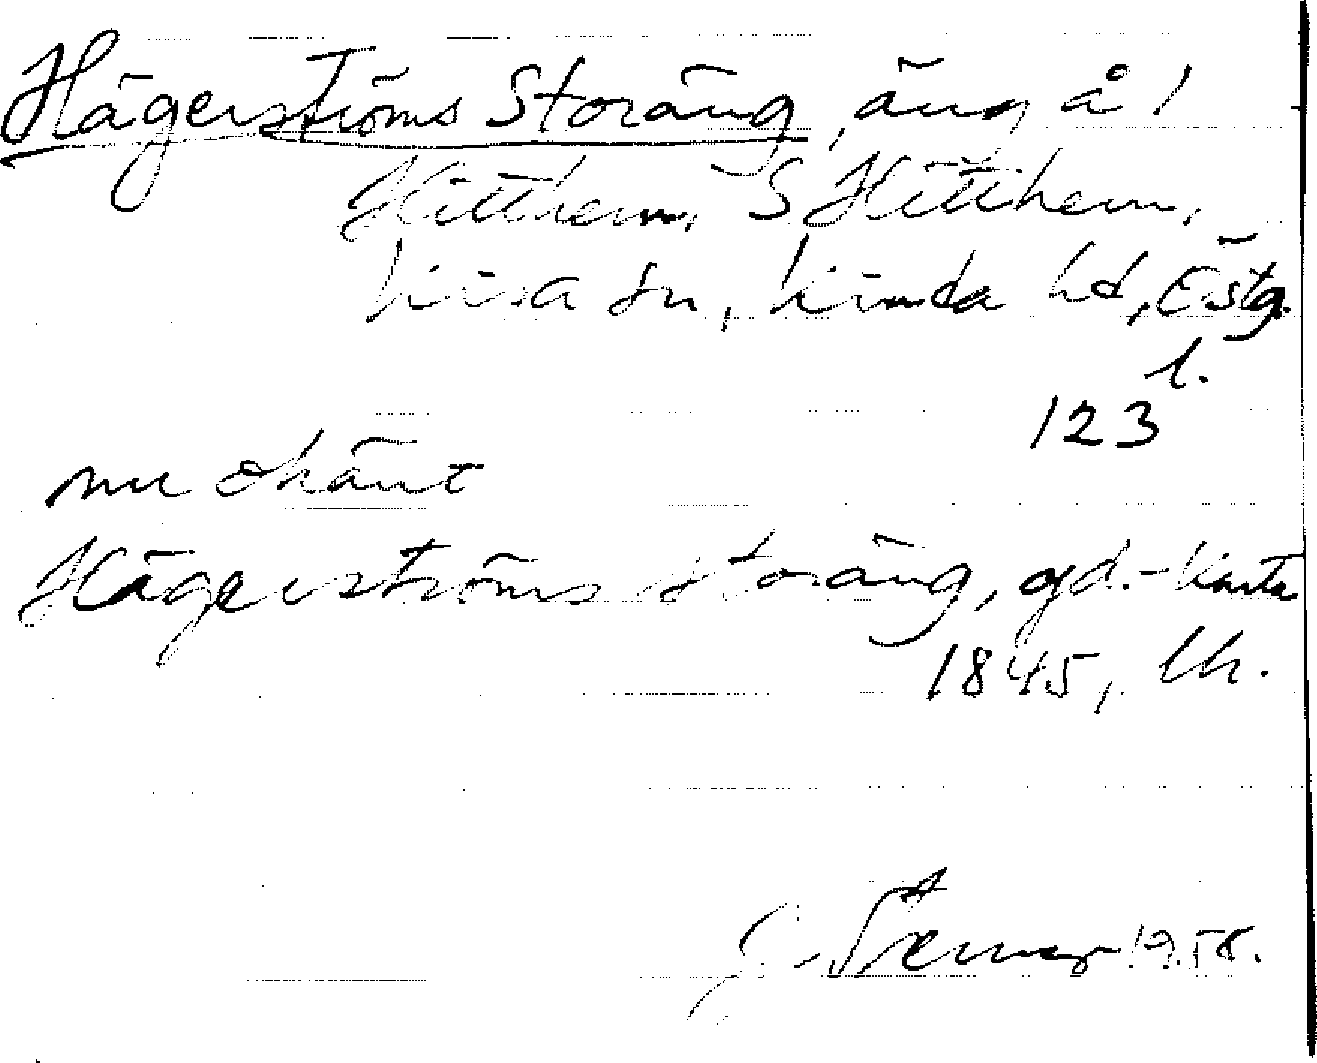 Hägerströms Storäng, äng å 1
Hitthem, S Hitthem,
Kisa sn, Kinda hd, Östg.
l.
123
nu okänt
Hägerströms storäng, gd.-karta
1845, lh.
1958.